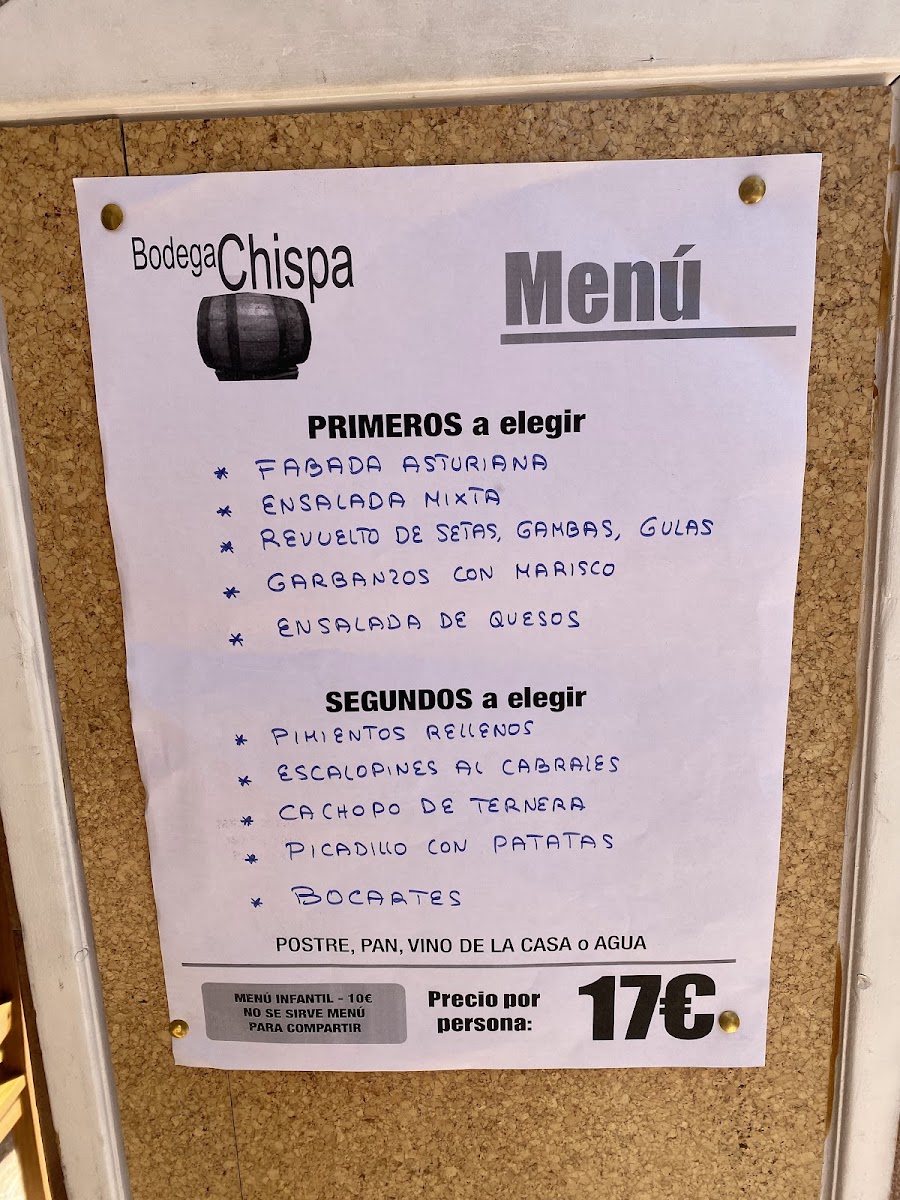 Bodega Chispa
Menú
PRIMEROS a elegir
* FABADA ASTURIANA
* ENSALADA MIXTA
* REVUELTO DE SETAS, GAMBAS, GULAS
* GARBANZOS CON MARISCO
* ENSALADA DE QUESOS
SEGUNDOS a elegir
* PIMIENTOS RELLENOS
* ESCALOPINES AL CABRALES
* CACHOPO DE TERNERA
* PICADILLO CON PATATAS
* BOCARTES
POSTRE, PAN, VINO DE LA CASA o AGUA
MENÚ INFANTIL - 10€
NO SE SIRVE MENÚ
PARA COMPARTIR
Precio por
persona:
17€